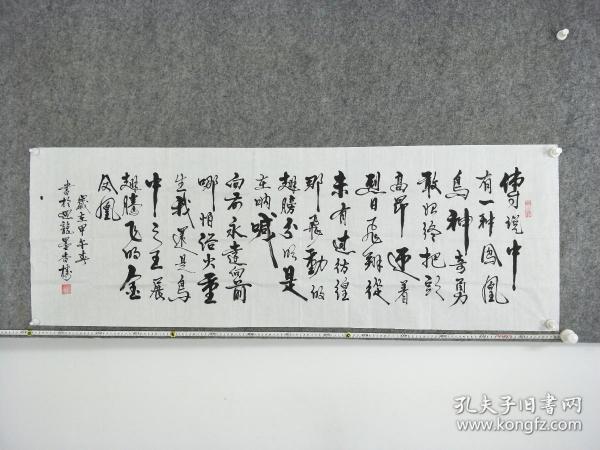 传说中
有一种凤凰
鸟神奇勇
敢坚强把头
高昂迎着
烈日飞翔从
未有过彷徨
那飞动的
翅膀分明是
在呐喊
向前永远向前
哪怕浴火重
生我还是鸟
中之王展
翅腾飞的金
凤凰
岁在甲午春
书于
墨香楼
孔夫子旧书网
www.kongfz.com